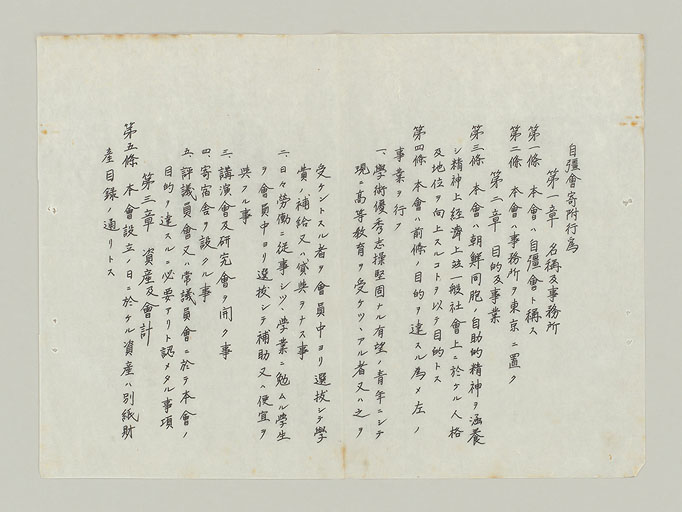 自彊會寄附行為
第一章 名稱及事務所
第一條 本會ハ自彊會ト稱ス
第二條 本會ハ事務所ヲ東京ニ置ク
第二章 目的及事業
第三條 本會ハ朝鮮同胞ノ自助的精神ヲ涵養
シ精神上經濟上竝一般社會上ニ於ケル人格
及地位ヲ向上スルコトヲ以テ目的トス
第四條 本會ハ前條ノ目的ヲ達スル為メ左ノ
事業ヲ行ク
一、學術優秀志操堅固ナル有望ノ青年ニシテ
現ニ高等教育ヲ受ケツヽアル者又ハ之ヲ
受ケントスル者ヲ會員中ヨリ選拔シテ學
費ノ補給又ハ貸與ヲナス事
二、日々勞働ニ從事シツヽ學業ニ勉ムル學生
ヲ會員中ヨリ選拔シテ補助又ハ便宜ヲ
與クル事
三、講演會及研究會ヲ開ク事
四、寄宿舍ヲ設クル事
五、評議員會又ハ常議員會ニ於テ本會ノ
目的ヲ達スルニ必要アリト認メタル事項
第三章 資產及會計
第五條 本會設立ノ日ニ於ケル資產ハ別紙財
產目錄ノ通リトス